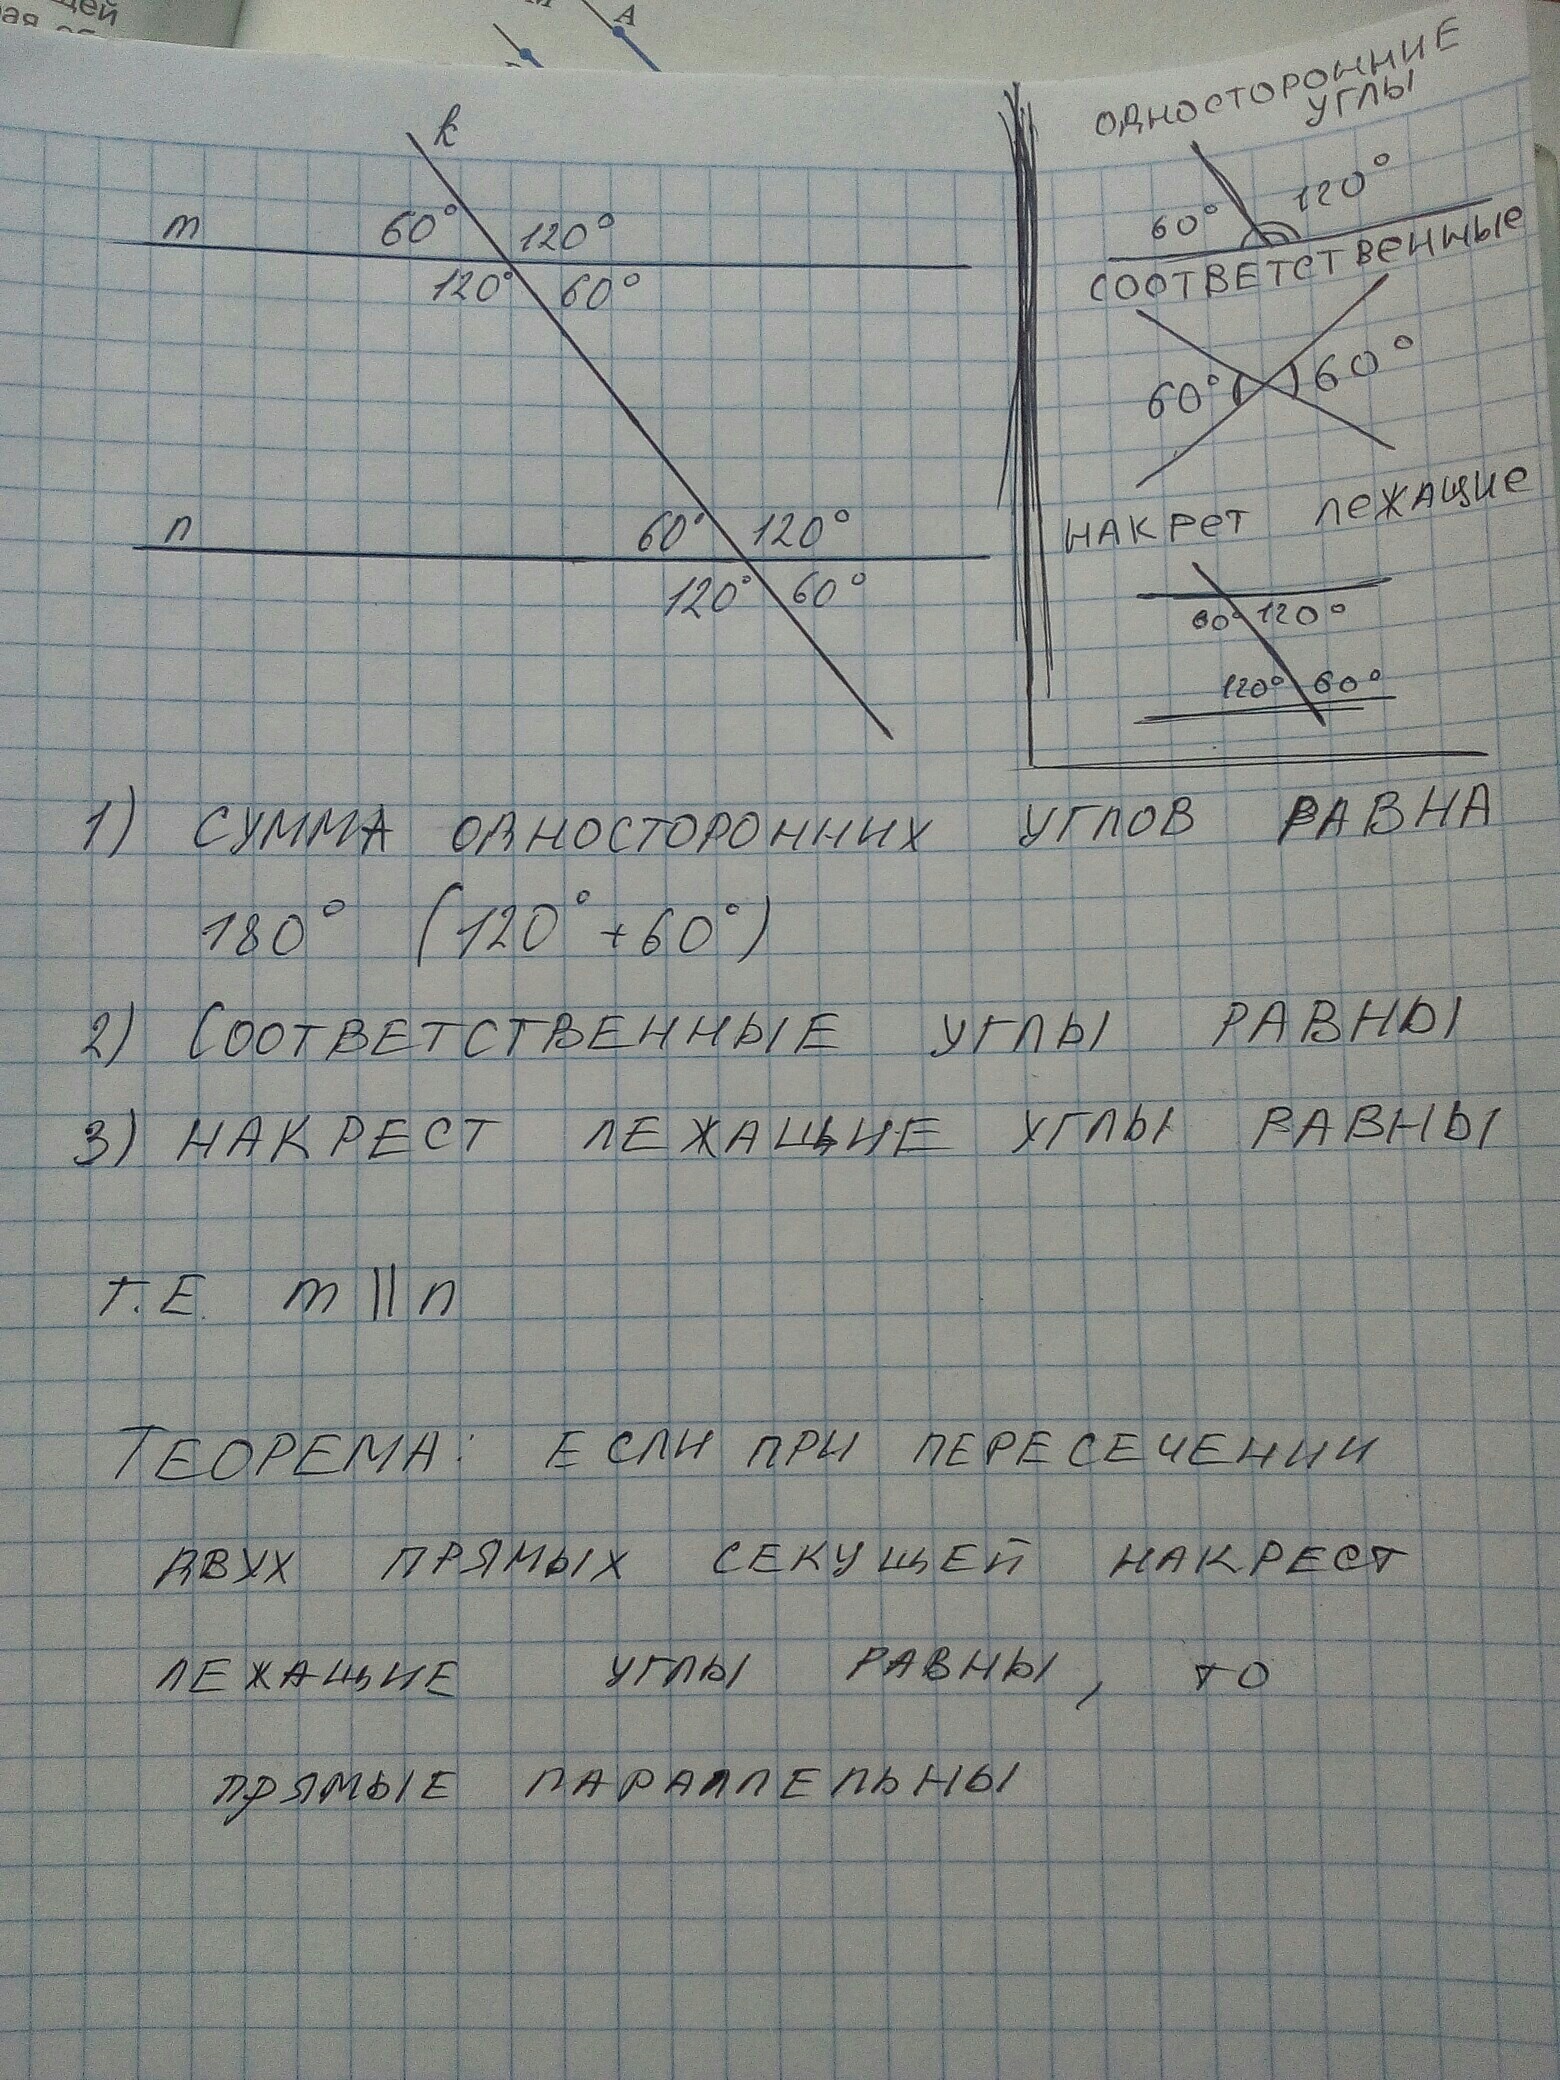 щей
М
А
k
m
60° 120°
120° 60°
n
60° 120°
120° 60°
ОДНОСТОРОННИЕ
УГЛЫ
60° 120°
СООТВЕТСТВЕННЫЕ
60° 60°
НАКРЕТ ЛЕЖАЩИЕ
60° 120°
120° 60°
1) СУММА ОДНОСТОРОННИХ УГЛОВ РАВНА
180° (120° + 60°)
2) СООТВЕТСТВЕННЫЕ УГЛЫ РАВНЫ
3) НАКРЕСТ ЛЕЖАЩИЕ УГЛЫ РАВНЫ
Т.Е. m || n
ТЕОРЕМА: ЕСЛИ ПРИ ПЕРЕСЕЧЕНИИ
ДВУХ ПРЯМЫХ СЕКУЩЕЙ НАКРЕСТ
ЛЕЖАЩИЕ УГЛЫ РАВНЫ, ТО
ПРЯМЫЕ ПАРАЛЛЕЛЬНЫ